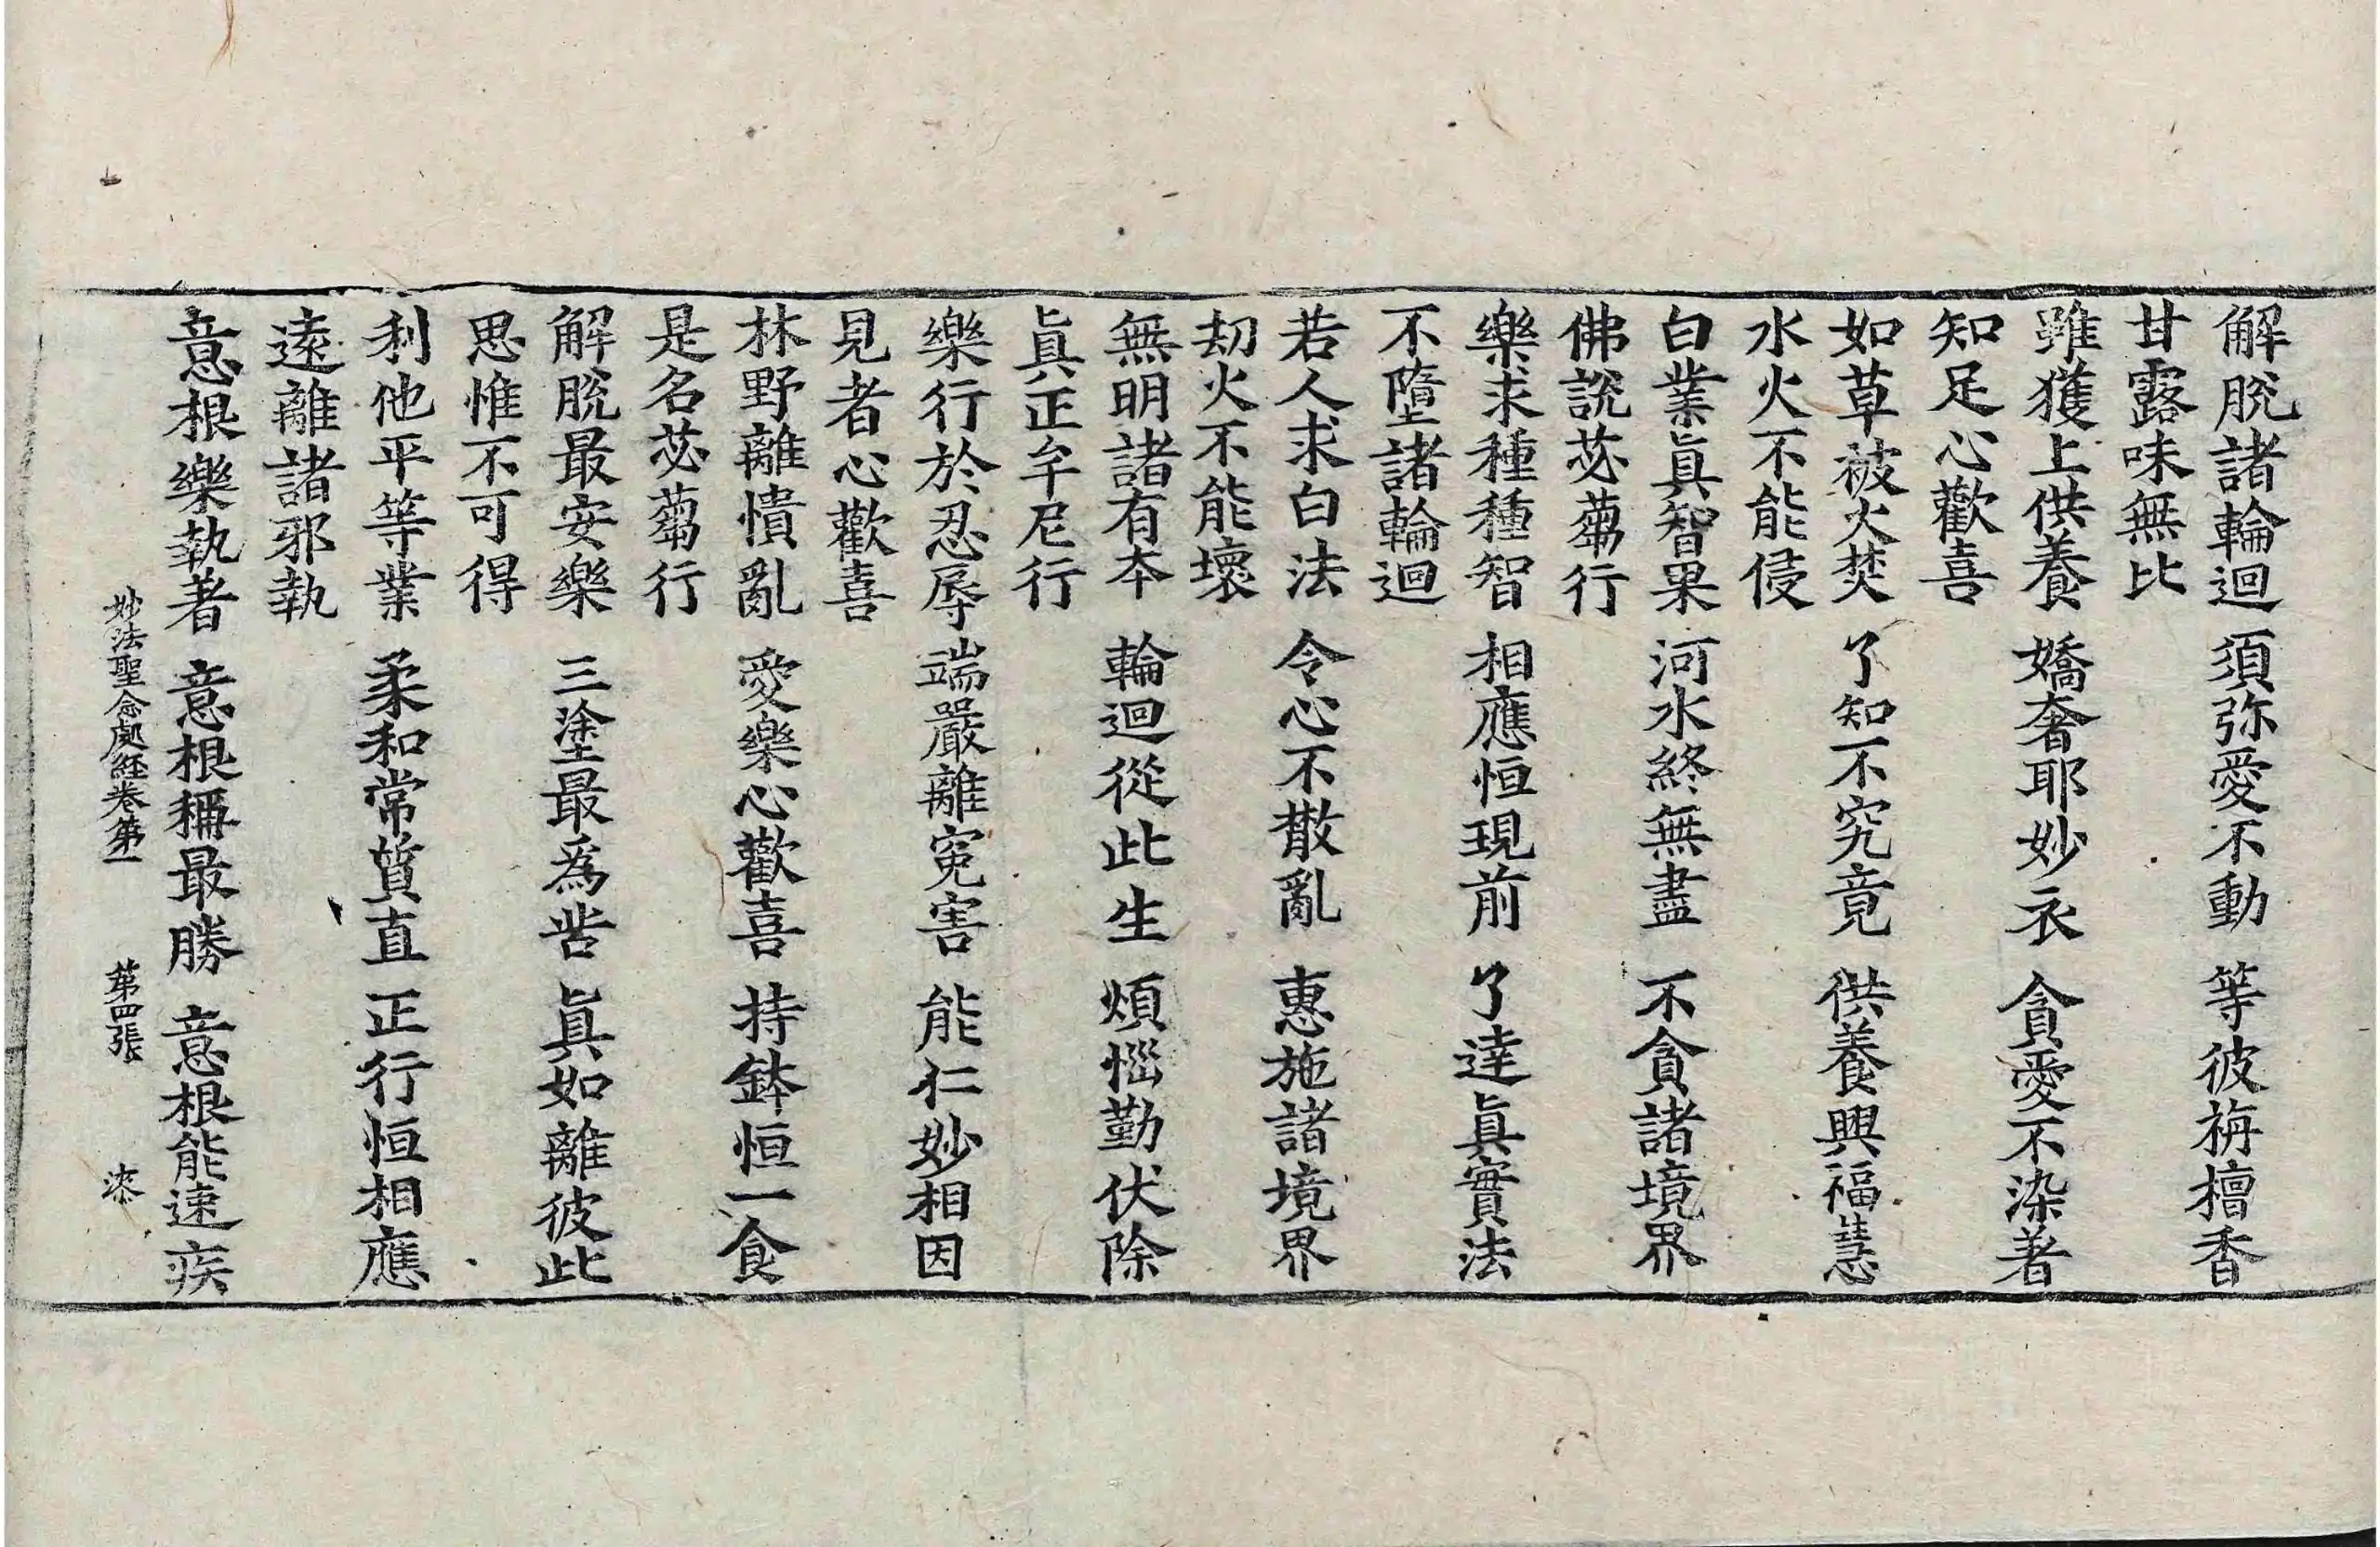 解脫諸輪迴 須弥愛不動 等彼栴檀香
甘露味無比
雖獲上供養 嬌奢耶妙衣 貪愛不染著
知足心歡喜
如草被火焚 了知不究竟 供養興福慧
水火不能侵
白業眞智果 河水終無盡 不貪諸境界
佛說苾蒭行
樂求種種智 相應恒現前 了達眞實法
不墮諸輪迴
若人求白法 令心不散亂 惠施諸境界
劫火不能壞
無明諸有本 輪迴從此生 煩惱勤伏除
眞正牟尼行
樂行於忍辱 端嚴離寃害 能仁妙相因
見者心歡喜
林野離憒亂 愛樂心歡喜 持鉢恒一食
是名苾蒭行
解脫最安樂 三塗最爲苦 眞如離彼此
思惟不可得
利他平等業 柔和常質直 正行恒相應
遠離諸邪執
意根樂執著 意根稱最勝 意根能速疾
妙法聖念處経卷第一 第四張 漆